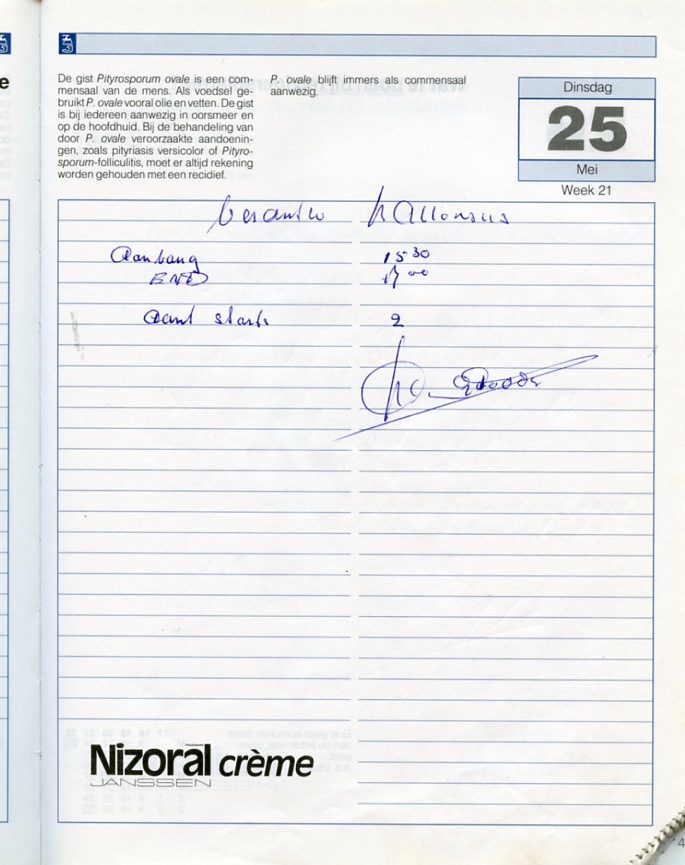 De gist Pityrosporum ovale is een com-
mensaal van de mens. Als voedsel ge-
bruikt P. ovale vooral olie en vetten. De gist
is bij iedereen aanwezig in oorsmeer en
op de hoofdhuid. Bij de behandeling van
door P. ovale veroorzaakte aandoenin-
gen, zoals pityriasis versicolor of Pityro-
sporum-folliculitis, moet er altijd rekening
worden gehouden met een recidief.
P. ovale blijft immers als commensaal
aanwezig.
Dinsdag
25
Mei
Week 21
15 30
END 17 00
Aant starts 2
Nizoral crème
JANSSEN